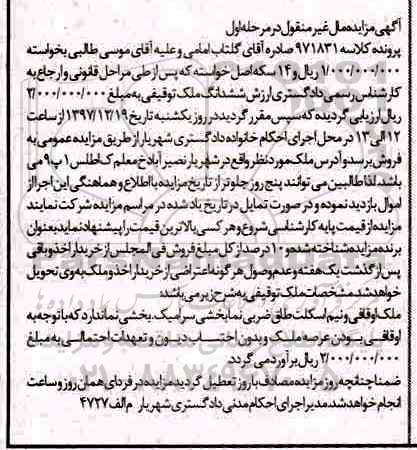 آگهی مزایده مال غیر منقول در مرحله اول
پرونده کلاسه ۹۷۱۸۳۱ صادره آقای گلتاب امامی و علیه آقای موسی طالبی بخواسته
۱/۰۰۰/۰۰۰/۰۰۰ ریال و ۱۴ سکه اصل خواسته که پس از طی مراحل قانونی و ارجاع به
کارشناس رسمی دادگستری ارزش ششدانگ ملک توقیفی به مبلغ ۲/۰۰۰/۰۰۰/۰۰۰
ریال ارزیابی گردیده که سپس مقرر گردید در روز یکشنبه تاریخ ۱۳۹۷/۱۲/۱۹ از ساعت
۱۲ الی ۱۳ در محل اجرای احکام خانواده دادگستری شهریار از طریق مزایده عمومی به
فروش برسد و آدرس ملک مورد نظر واقع در شهریار نصیر آباد خ معلم ک اطلس ۱ پ ۹ می
باشد، لذا طالبین می توانند پنج روز جلوتر از تاریخ مزایده با اطلاع و هماهنگی این اجرا از
اموال بازدید نموده و در صورت تمایل در تاریخ یاد شده در مراسم مزایده شرکت نمایند
مزایده از قیمت پایه کارشناسی شروع و هر کسی بالاترین قیمت را پیشنهاد نماید بعنوان
برنده مزایده شناخته شده و ۱۰ درصد از کل مبلغ فروش فی المجلس از خریدار اخذ و باقی
پس از گذشت یک هفته و عدم وصول هر گونه اعتراضی از خریدار اخذ و ملک به وی تحویل
خواهد شد. مشخصات ملک توقیفی به شرح زیر می باشد:
ملک اوقافی و نیم اسکلت طاق ضربی نما بخشی سرامیک، بخشی نما ندارد که با توجه به
اوقافی بودن عرصه ملک و بدون احتساب دیون و تعهدات احتمالی به مبلغ
۲/۰۰۰/۰۰۰/۰۰۰ ریال برآورد می گردد.
ضمنا چنانچه روز مزایده مصادف با روز تعطیل گردید مزایده در فردای همان روز و ساعت
انجام خواهد شد. مدیر اجرای احکام مدنی دادگستری شهریار م الف ۴۷۲۷